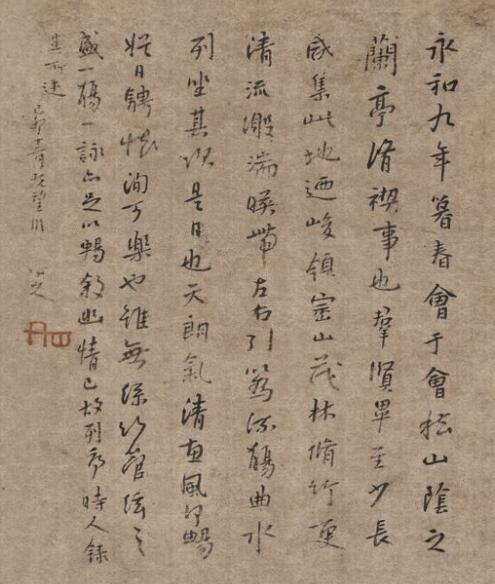 永和九年暮春會于會稽山陰之
蘭亭脩禊事也羣賢畢至少長
咸集此地迺峻領崇山茂林脩竹更
清流激湍暎帶左右引為流觴曲水
列坐其次是日也天朗氣清惠風和暢
娛目騁懷洵可樂也雖無絲竹管絃之
盛一觴一詠亦足以暢敘幽情已故列序時人錄
其所述
己卯 既望